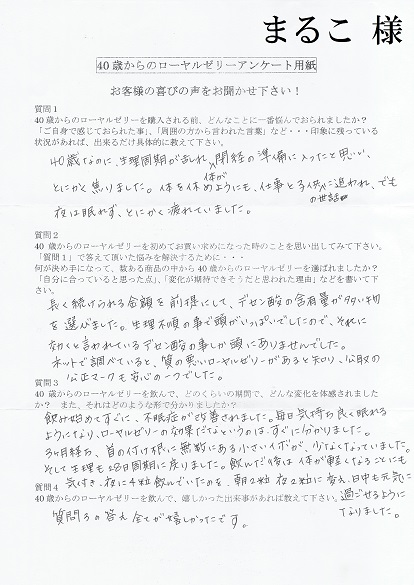 まるこ 様
40歳からのローヤルゼリーアンケート用紙
お客様の喜びの声をお聞かせ下さい！
質問1
40歳からのローヤルゼリーを購入される前、どんなことに一番悩んでおられましたか？
「ご自身で感じておられた事」、「周囲の方から言われた言葉」など・・・印象に残っている
状況があれば、出来るだけ具体的に教えて下さい。
40歳なのに、生理周期が乱れ、閉経の準備に入ったと思い、
とにかく焦りました。体を休めようにも、仕事と子供の世話に追われ、でも
体が
夜は眠れず、とにかく疲れていました。
質問2
40歳からのローヤルゼリーを初めてお買い求めになった時のことを思い出してみて下さい。
「質問1」で答えて頂いた悩みを解決するために・・・
何が決め手になって、数ある商品の中から40歳からのローヤルゼリーを選ばれましたか？
「自分に合っていると思った点」、「変化が期待できそうだと思われた理由」などを書いて下
さい。
長く続けられる金額を前提にして、デセン酸の含有量が多い物
を選びました。生理不順の事で頭がいっぱいでしたので、それに
効くと言われているデセン酸の事しか頭にありませんでした。
ネットで調べていると、質の悪いローヤルゼリーがあると知り、公取の
公正マークも安心の一つでした。
質問3
40歳からのローヤルゼリーを飲んで、どのくらいの期間で、どんな変化を体感されまし
たか？ また、それはどのような形で分かりましたか？
飲み始めてすぐに、不眠症が改善されました。毎日気持ち良く眠れる
ようになり、ローヤルゼリーの効果だなというのは、すぐに分かりました。
3ヶ月経ち、首の付け根に無数にある小さいイボが、少なくなっていました。
そして生理も28日周期に戻りました。飲んだ後は体が軽くなることにも
気付き、夜に4粒飲んでいたのを、朝2粒 夜2粒に変え、日中も元気に
過ごせるように
なりました。
質問4
40歳からのローヤルゼリーを飲んで、嬉しかった出来事があれば教えて下さい。
質問3の答え全てが嬉しかったです。